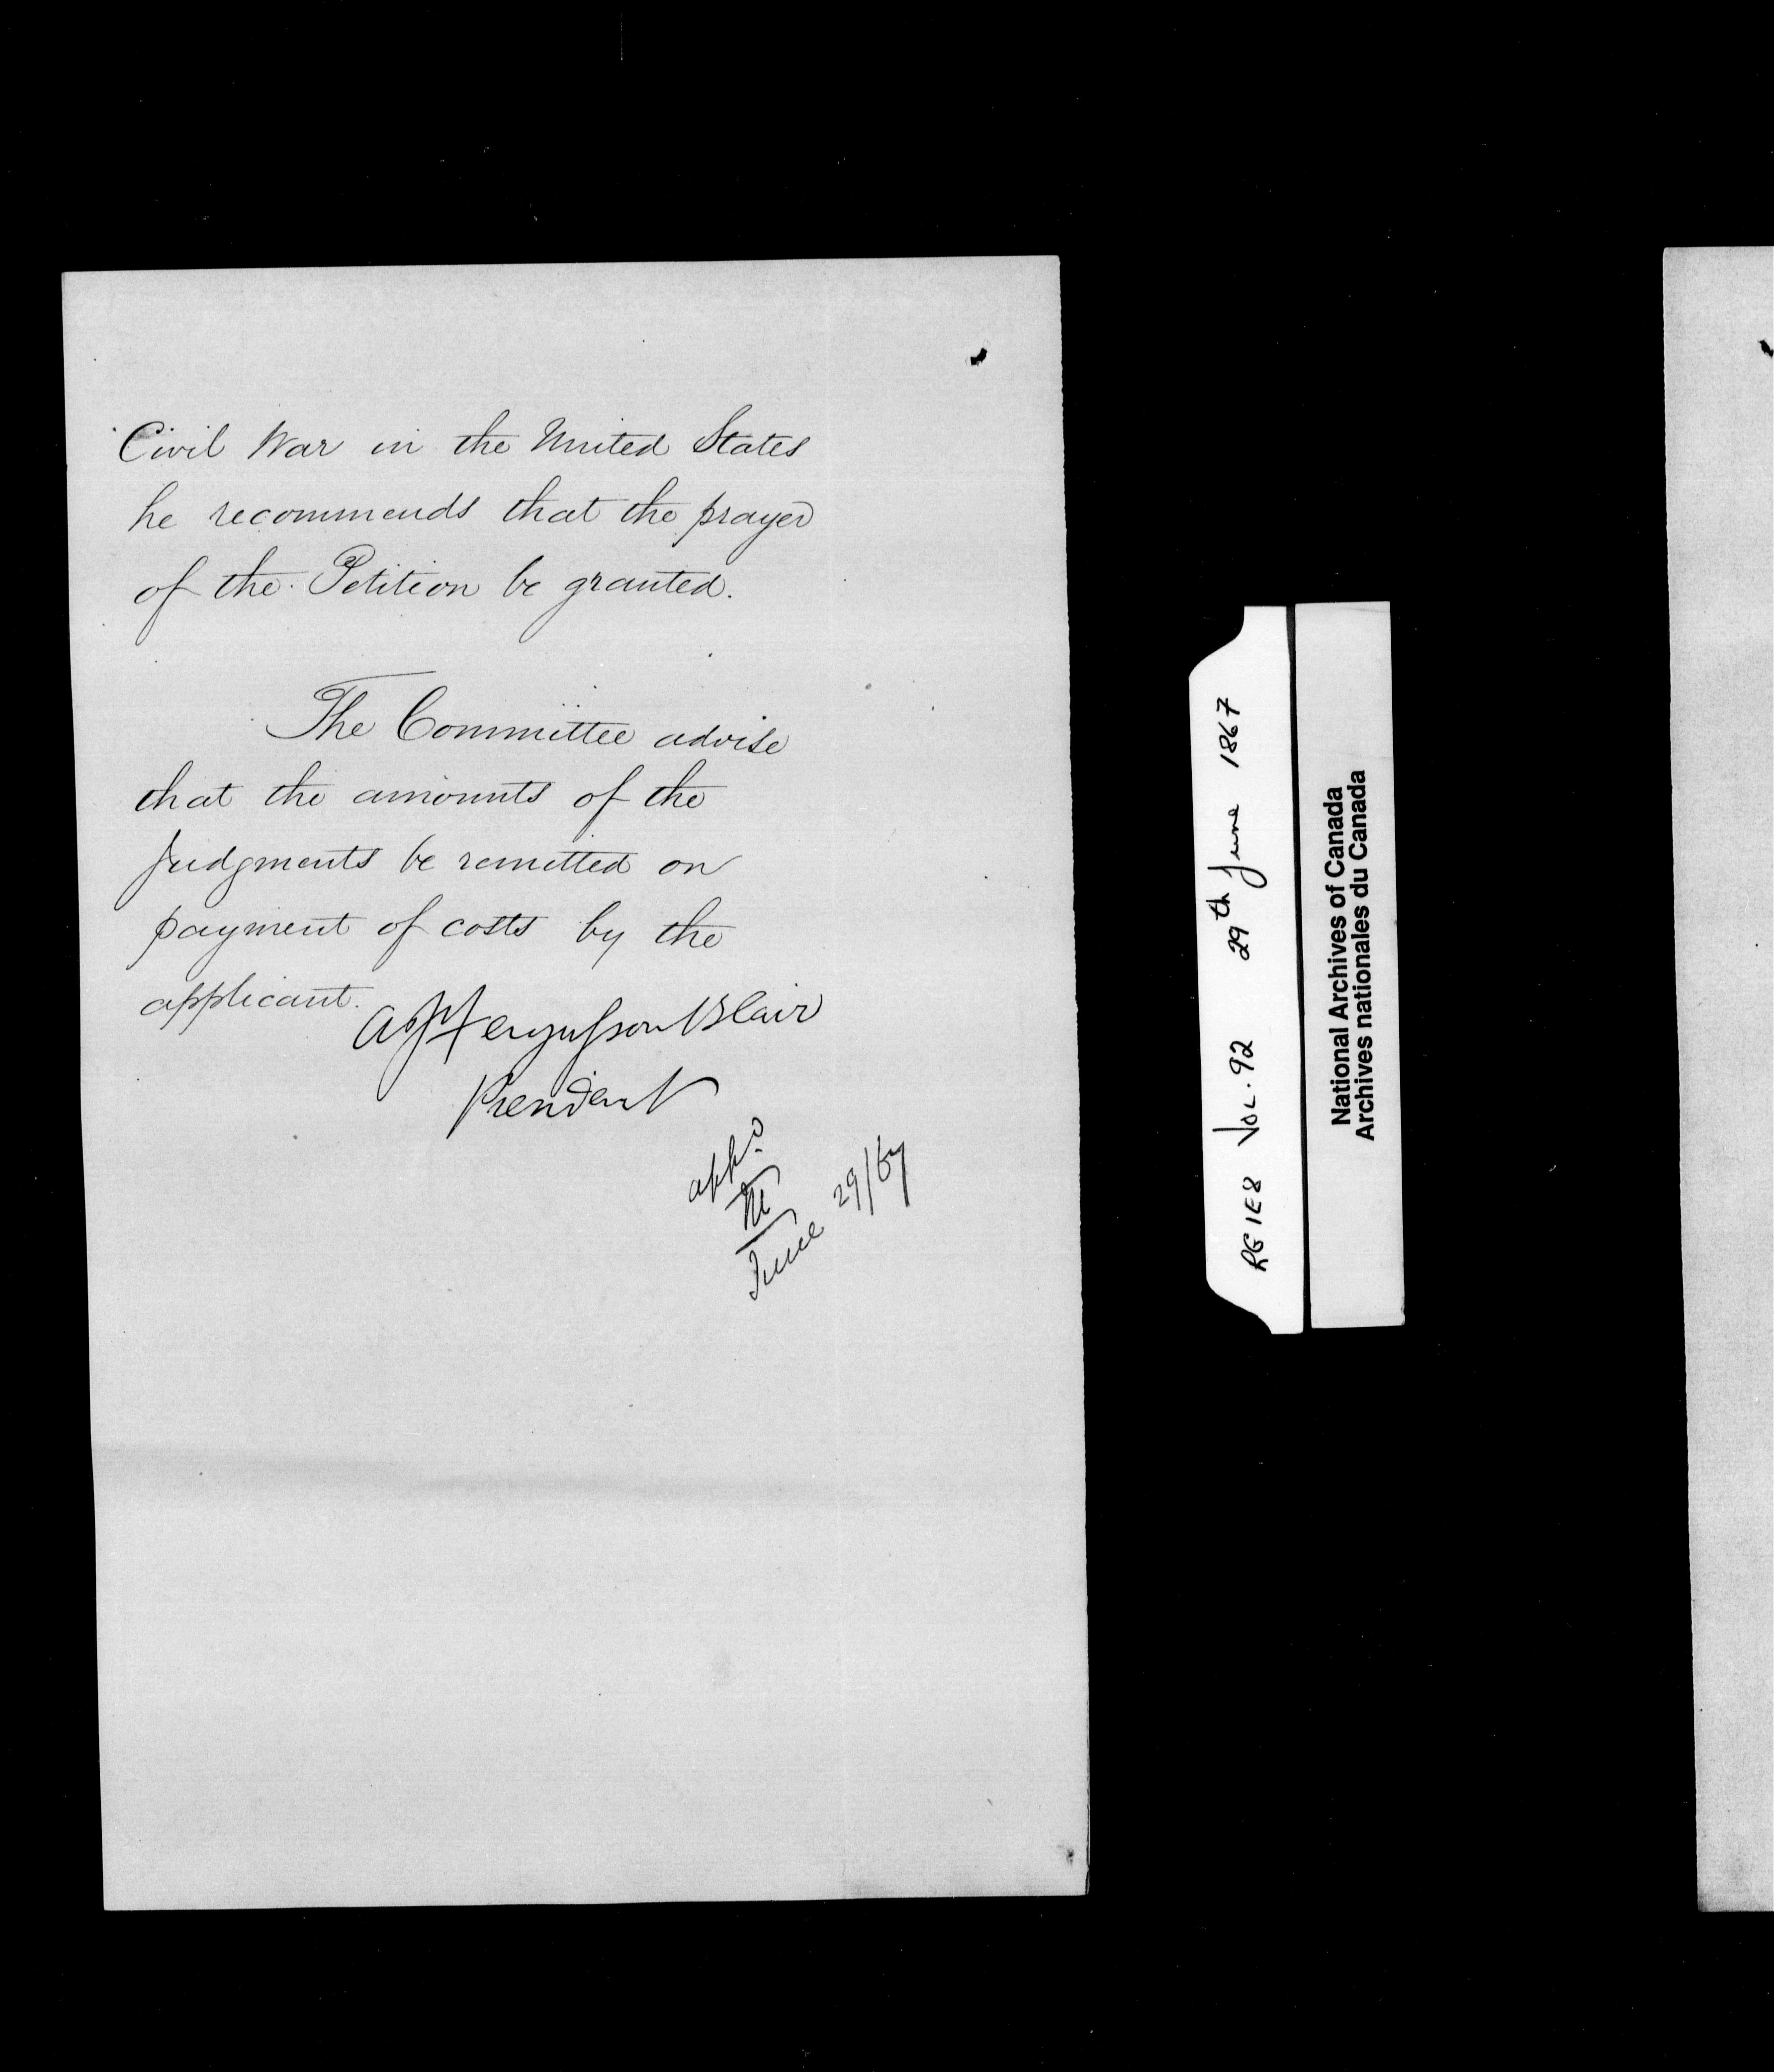 Civil War in the United States
he recommends that the prayer
of the Petition be granted.
The Committee advise
that the amounts of the
judgments be remitted on
payment of costs by the
applicant.
A J Fergusson Blair
President
appd
M
June 29/67
RG1E8 VOL. 92 29th June 1867
National Archives of Canada
Archives nationales du Canada